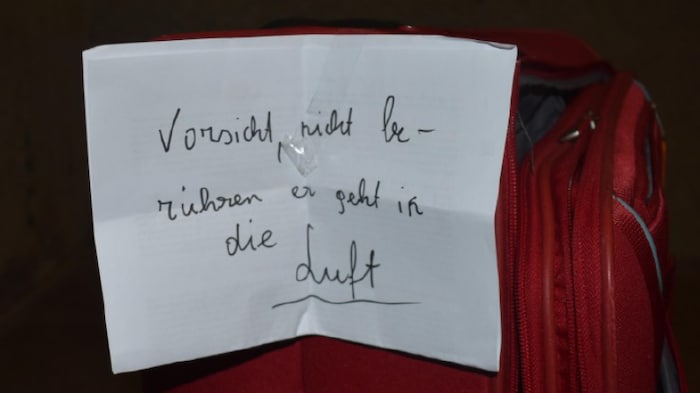 Vorsicht, nicht be-
rühren er geht in
die Luft